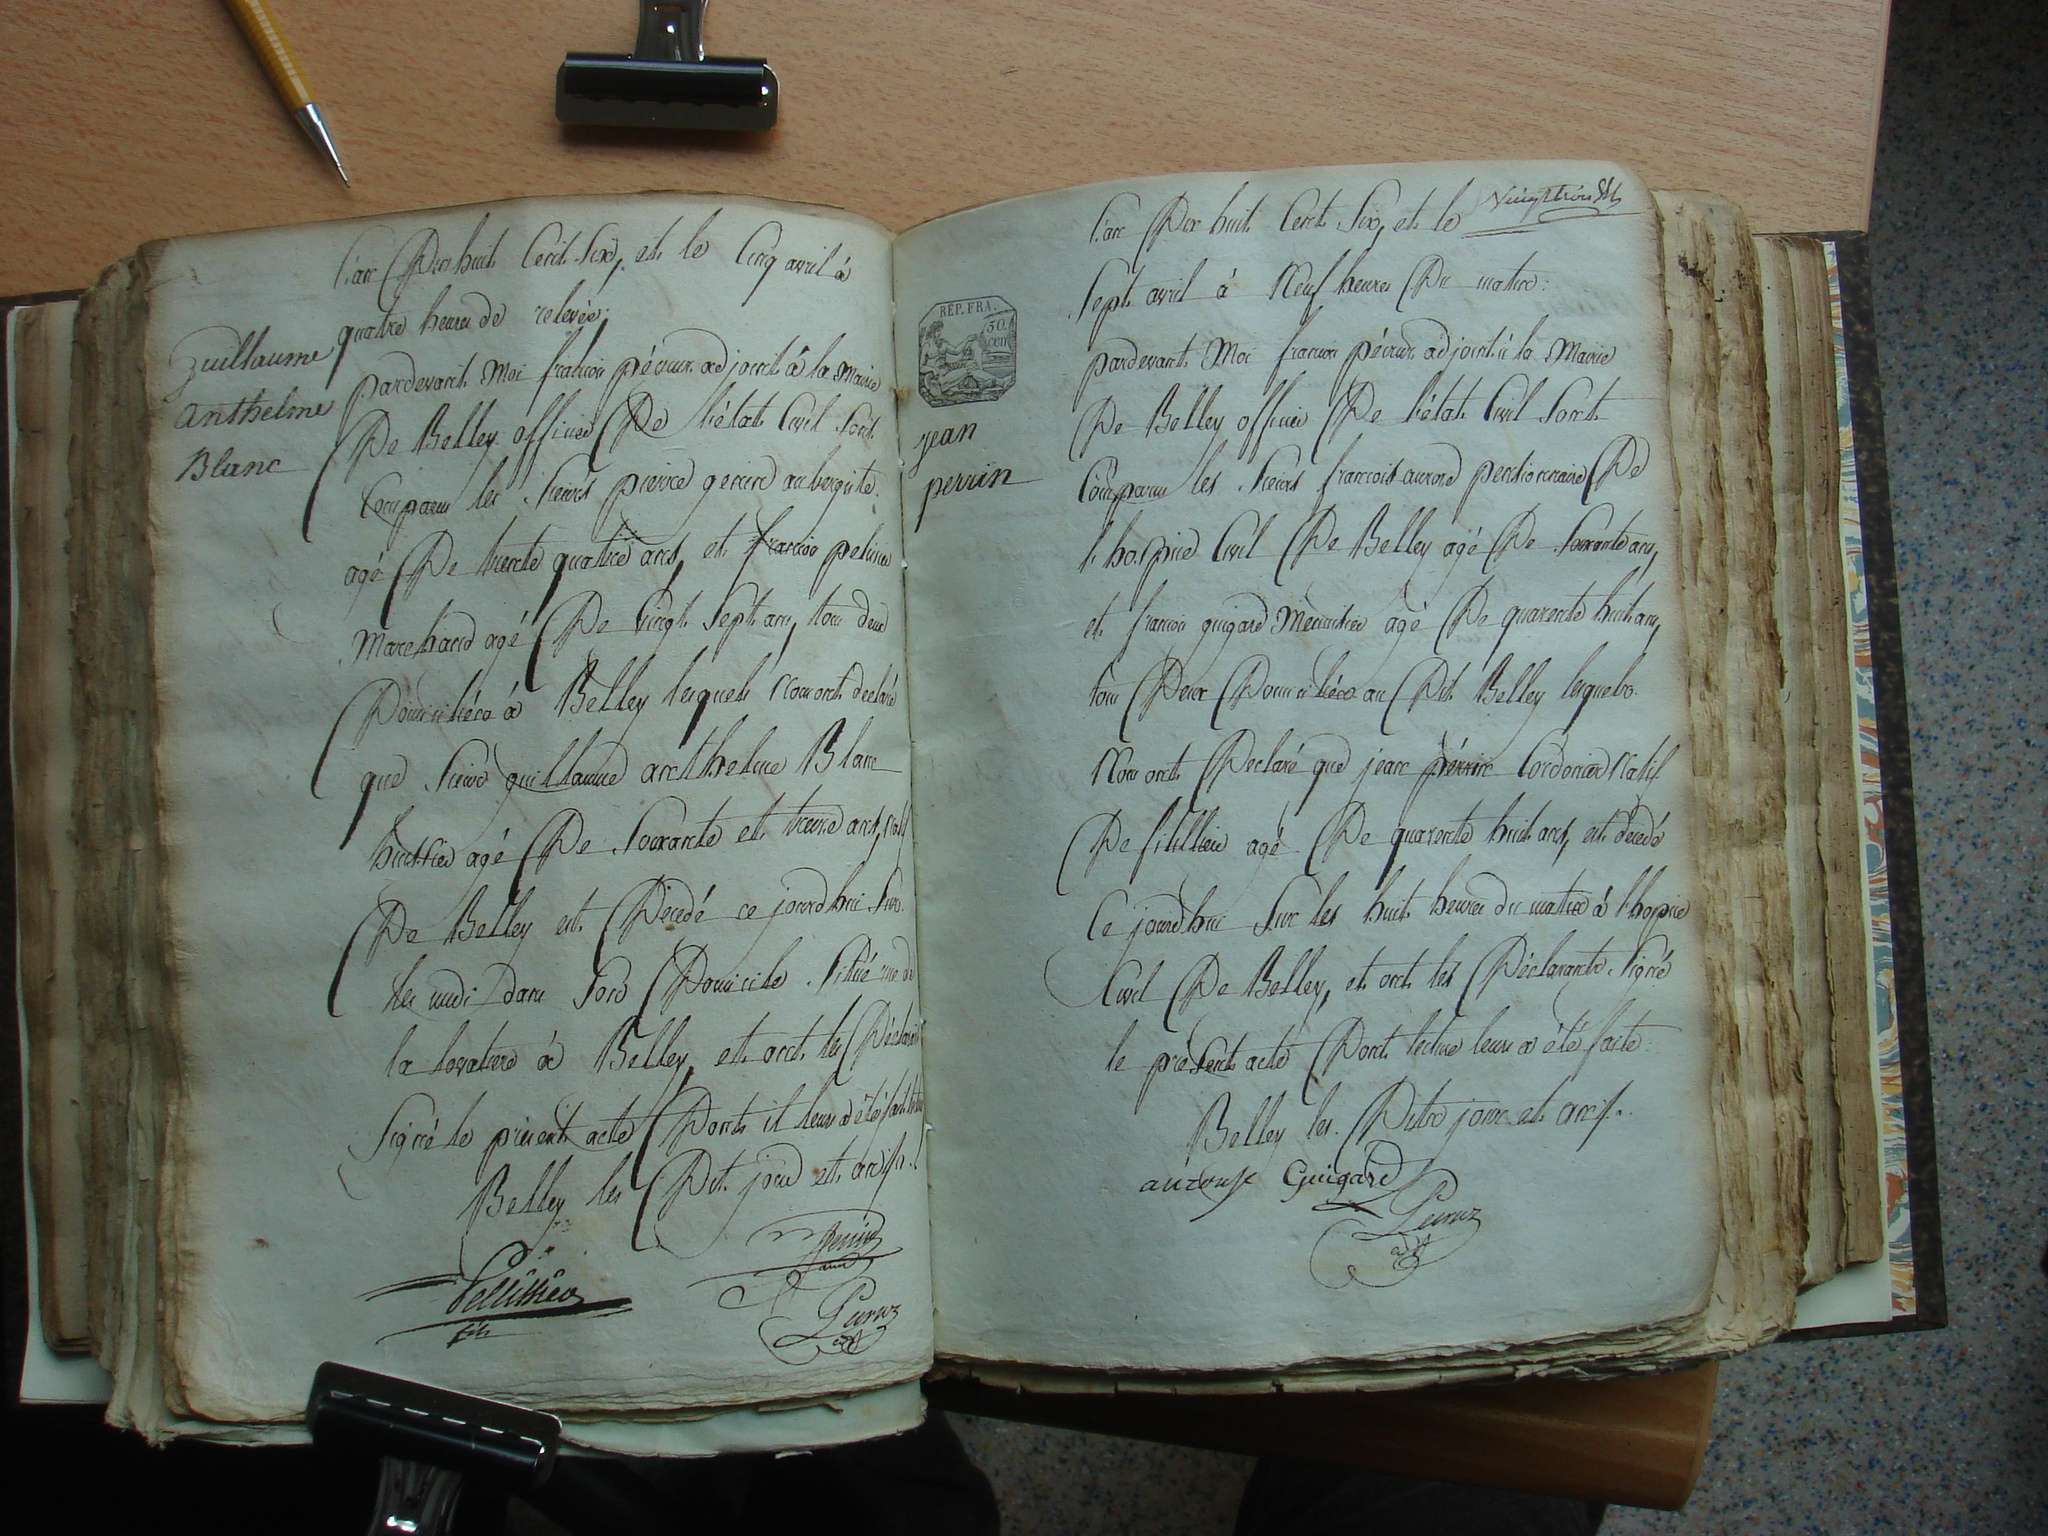 l'an Dix huit Cent Six, et le Cinq avril à
quatre heures de relevée.
Guillaume
anthelme
Blanc
pardevant Moi françois péruz adjoint à la Mairie
De Belley officier De l'état Civil Sont
Comparu les Sieurs pierre genin aubergiste
agé De trente quatre ans, et françois pelissier
Marchand agé De Vingt Sept ans, tous deux
Domiciliés à Belley lesquels Nous ont declaré
que Sieur guillaume anthelme Blanc
huissier agé De Soixante et treize ans, natif
De Belley est Décedé ce jourd'hui Sur
les midi dans Son Domicile Situé rue de
la à Belley, et ont les Déclarants
Signé le présent acte Dont il leurs a été fait lecture
Belley les Dit jour et an
Pellissier
fils
genin
Peruz
adjt
Vingt trois
l'an Dix huit Cent Six, et le
Sept avril à Neuf heures Du matin:
RÉP. FRA.
50
cen
jean
perrin
pardevant Moi françois péruz adjoint à la Mairie
De Belley officier De l'état Civil Sont
Comparu les Sieurs francois pensionnaire De
l'hospice Civil De Belley agé De Soixante ans,
et françois guigard Menuisier agé De quarente huit ans,
tous Deux Domiciliés au Dit Belley lesquels
Nous ont Déclaré que jean perrin Cordonier Natif
De agé De quarente huit ans, est décedé
Ce jourd'hui Sur les huit heures du matin à l'hospice
Civil De Belley, et ont les Déclarants Signé
le présent acte Dont lecture leurs a été faite:
Belley les Dits jour et an
Guigard
Peruz
adjt